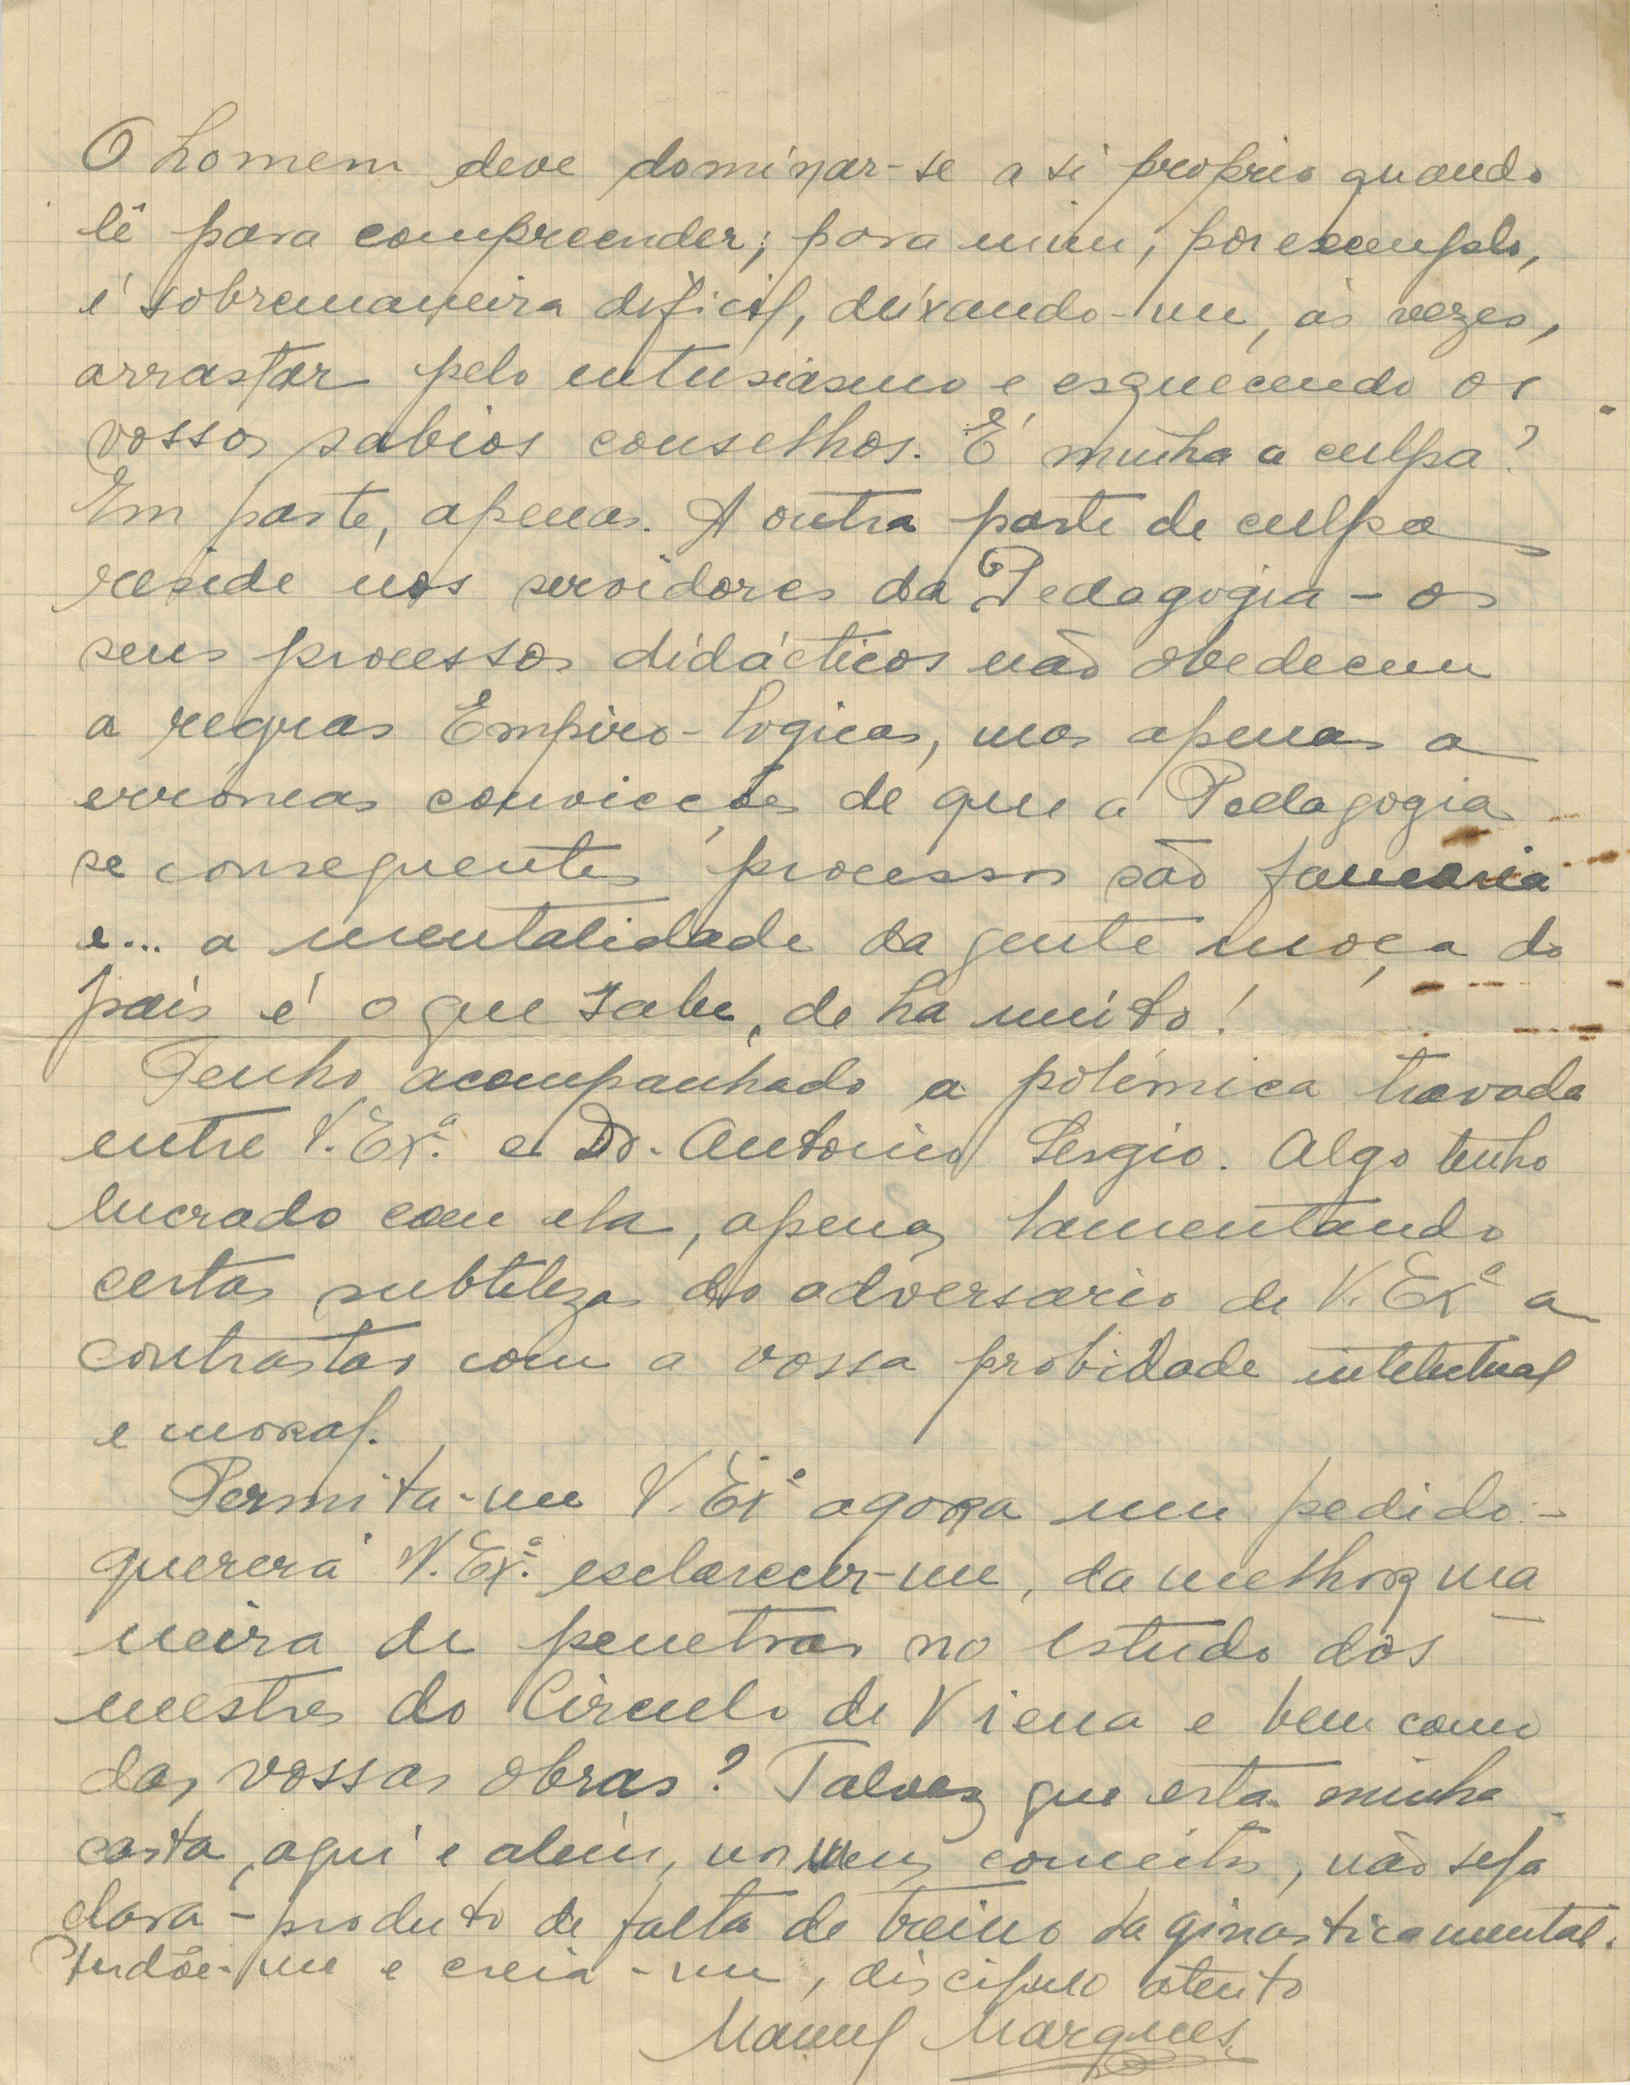 O homem deve dominar-se a si proprio quando
lê para compreender; para mim, por exemplo,
é sobremaneira dificil, deixando-me, às vezes,
arrastar pelo entusiasmo e esquecendo os
vossos sabios conselhos. É minha a culpa?
Em parte, apenas. A outra parte de culpa
reside nos servidores da Pedagogia - os
seus processos didácticos não obedecem
a regras Empiro-logicas, mas apenas a
erróneas convicções de que a Pedagogia
se consequentes processos são
e... a mentalidade da gente moça do
país é o que sabe, de ha muito!
Tenho acompanhado a polémica travada
entre V. Exª. e Dr. Antonio Sergio. Algo tenho
lucrado com ela, apenas lamentando
certas subtilezas do adversario de V. Exª a
contrastar com a vossa probidade intelectual
e moral.
Permita-me V. Exª agora um pedido: -
quererá V. Exª. esclarecer-me, da melhor ma
neira de penetrar no estudo dos
mestres do Circulo de Viena e bem como
das vossas obras? Talvez que esta minha
carta, aqui e além, nos meus conceitos, não seja
clara - produto de falta de treino da ginastica mental.
Perdôe-me e creia-me, discipulo atento
Manuel Marques